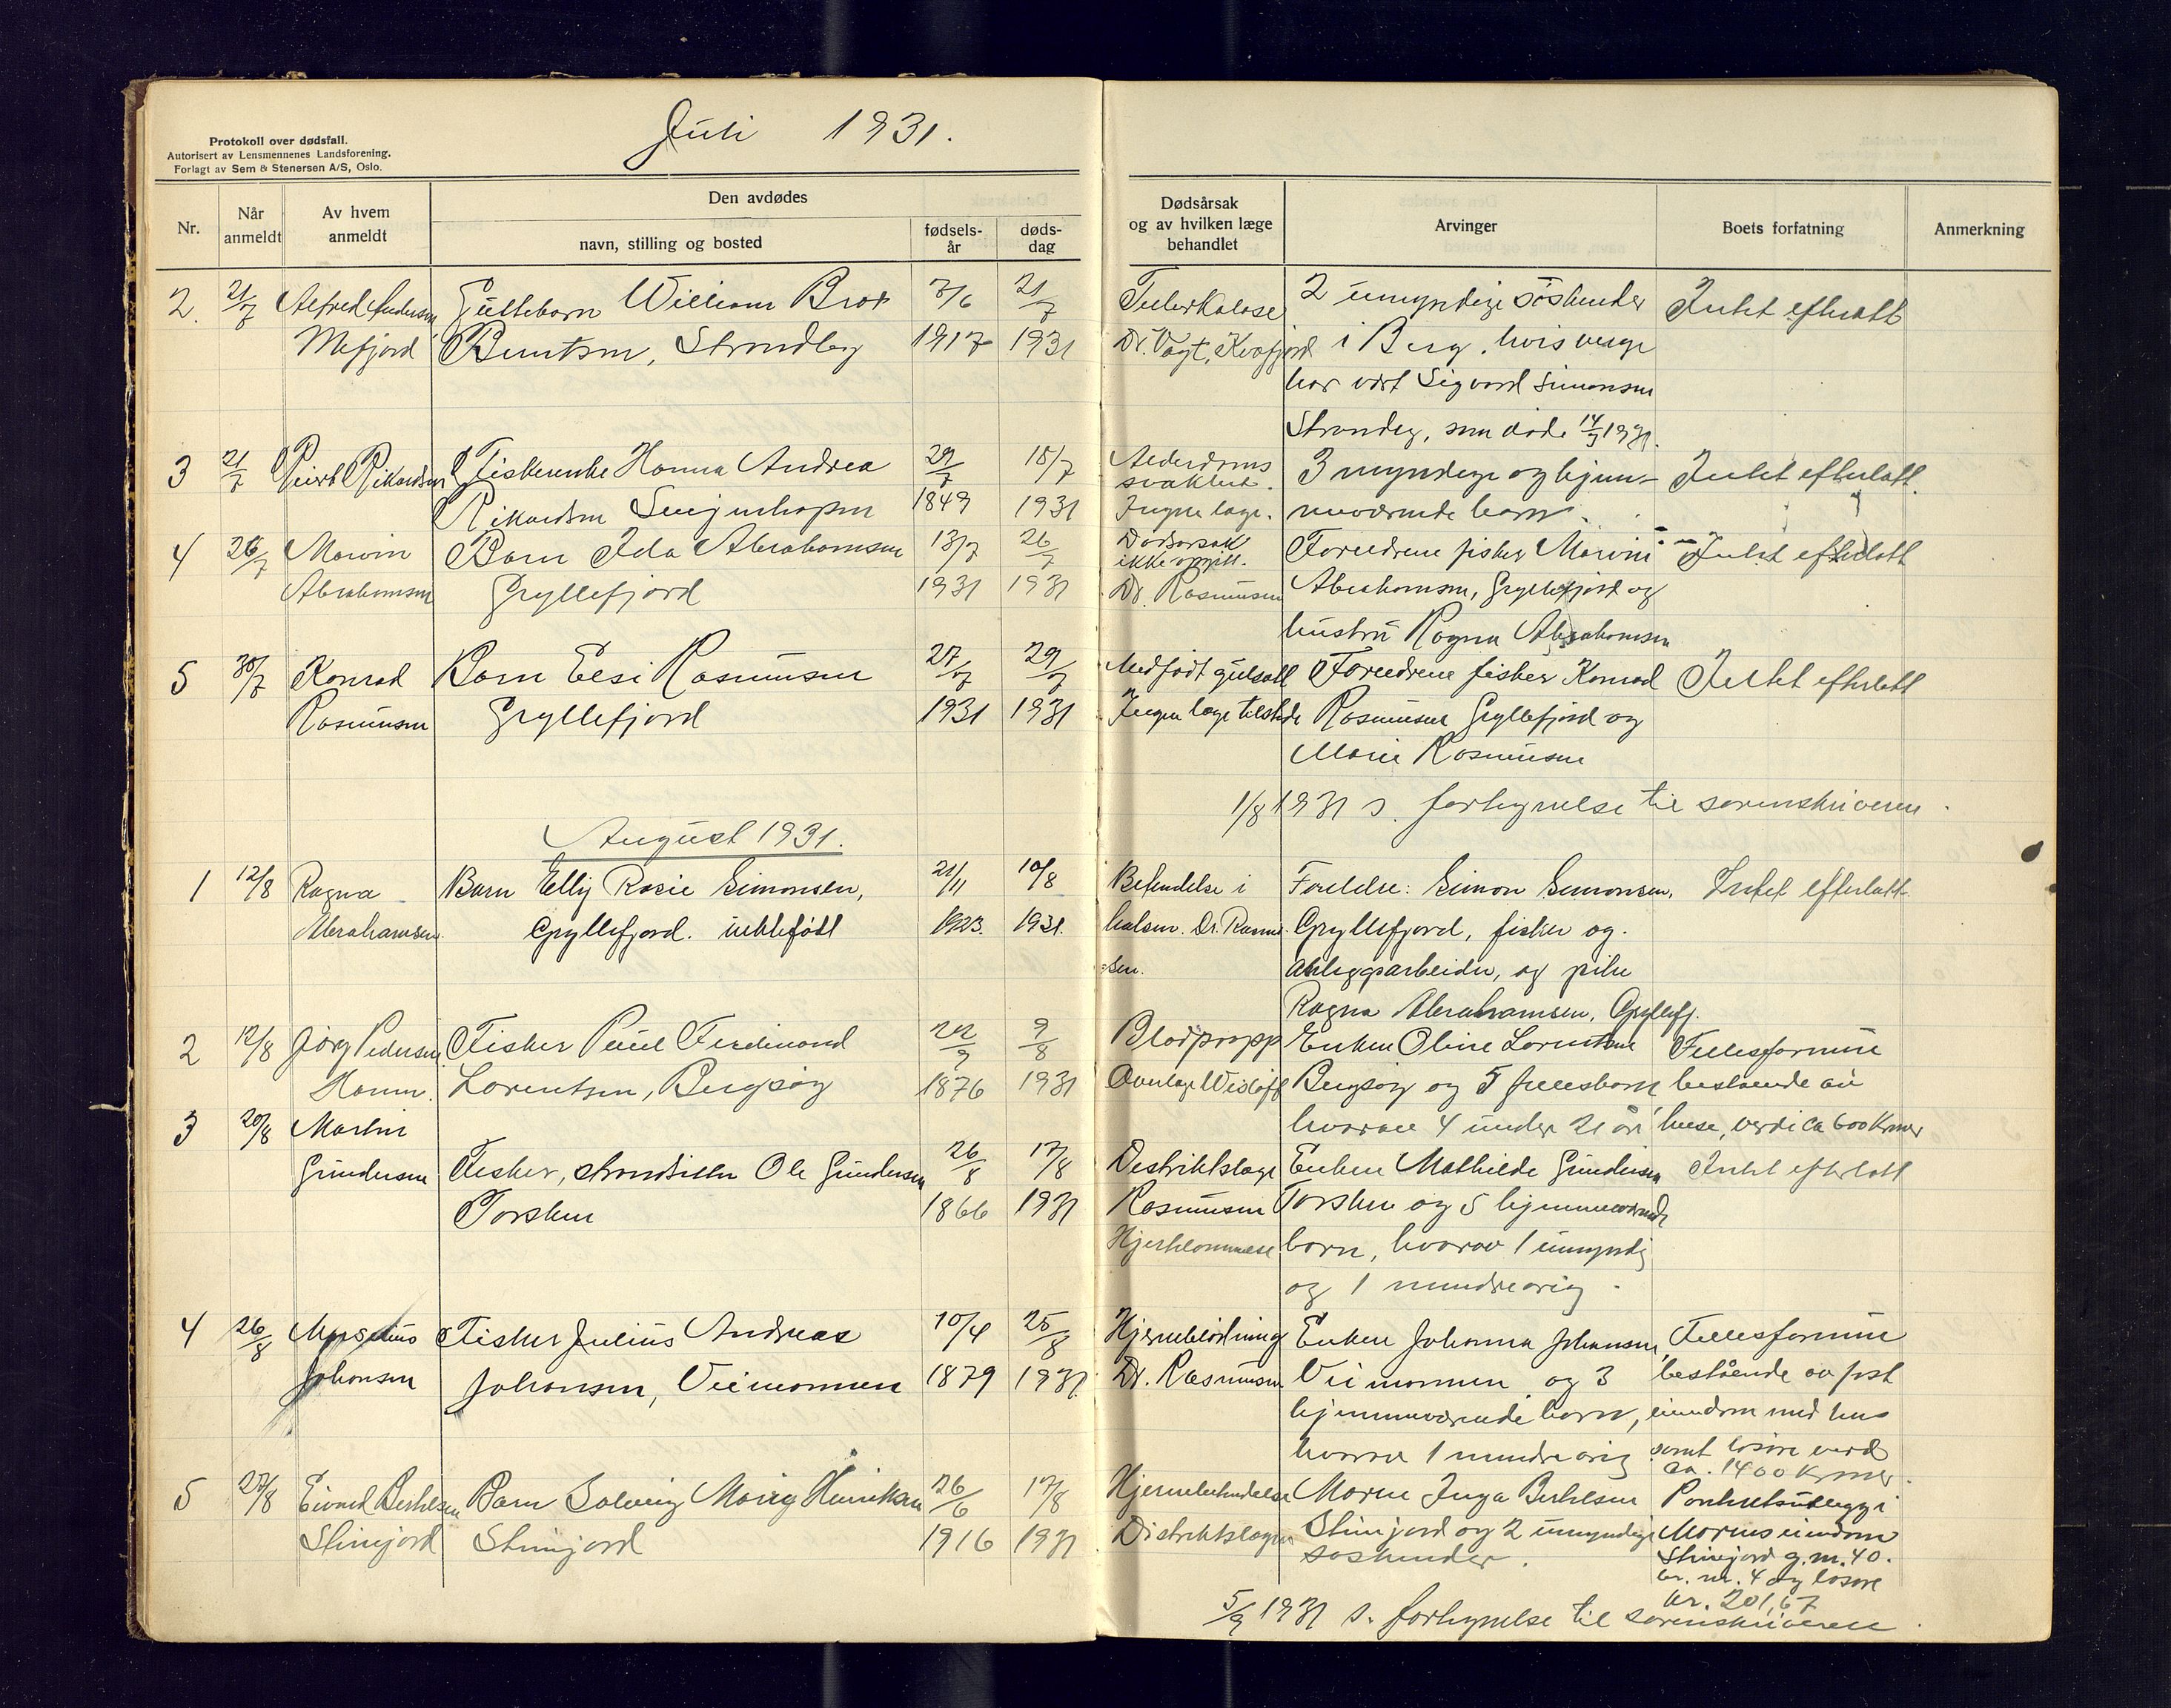 Juli 1931.
Protokoll over dødsfall.
Autorisert av Lensmennenes Landsforening.
Forlagt av Sem & Stenersen A/S, Oslo.
Nr.
Når anmeldt
Av hvem anmeldt
Den avdødes
navn, stilling og bosted
fødselsår
dødsdag
Dødsårsak og av hvilken læge behandlet
Arvinger
Boets forfatning
Anmerkning
2. 21/7 Alfred Andersen Gutteborn William Brox 7/6 21/7 Tuberkolose 2 umyndige søskender Intet efterlatt
Mefjord Berntsen, Strandby 1917 1931 Dr. Vogt, Kvæfjord i Berg, hvis verge
har vært Sigvard Simonsen
Strandby, som døde 14/3 1931.
3 21/7 Peirt Rikardsen Fiskerenke Hanna Andrea 29/7 18/7 Alderdoms 3 myndige og hjem- Intet efterlatt.
Rikardsen Senjenhopen 1849 1931 svakhet. Ingen læge. meværende barn.
4 26/7 Marvin Barn Ida Abrahamsen 13/7 26/7 Dødsårsak ikke opgitt. Foreldrene fisker Marvin Intet efterlatt
Abrahamsen Gryllefjord 1931 1931 Dr. Rasmussen Abrahamsen, Gryllefjord og
hustru Ragna Abrahamsen
5 30/7 Konrad Barn Elsi Rasmussen 27/7 29/7 Medfødt gulsott Foreldrene fisker Konrad Intet efterlatt
Rasmussen Gryllefjord 1931 1931 Ingen læge tilstede Rasmussen Gryllefjord og
Marie Rasmussen
1/8 1931 s. fortegnelse til sorenskriveren.
August 1931.
1 12/8 Ragna Barn Elly Rosie Simonsen, 21/11 10/8 Betendelse i Foreldre: Simon Simonsen, Intet efterlatt
Abrahamsen Gryllefjord. uektefødt 1923. 1931. halsen. Dr. Rasmus- Gryllefjord, fisker og
sen. anleggsarbeider, og pike
Ragna Abrahamsen, Gryllefj.
2 12/8 Jørg Pedersen Fisker Paul Ferdinand 22/9 9/8 Blodpropp Enken Oline Lorentsen Fellesformue
Hamn. Lorentsen, Bergsøy 1876 1931 Overlæge Wisløff Bergsøy og 5 fellesbarn bestående av
3 20/8 Martin hvorav 4 under 21 år huse, verdi ca 600 kroner
Gundersen Fisker, strandsitter Ole Gundersen 26/8 17/8 Distriktslæge Enken Mathilde Gundersen Intet efterlatt
Torsken 1866 1931 Rasmussen Torsken og 5 hjemmeværende
Hjertelammelse barn, hvorav 1 umyndig
og 1 mindreårig.
4 26/8 Johansen Fisker Julius Andreas 10/4 25/8 Hjerneblødning Enken Johanna Johansen, Fellesformue
Johansen, Veimannen 1879 1931 Dr. Rasmussen Veimannen og 3 bestående av fast
hjemmeværende barn, eiendom med hus
hvorav 1 mindreårig samt løsøre verd
ca. 1400 kroner.
5 27/8 Eivind Berthelsen Barn Solveig Marry Henriksen 26/6 17/8 Hjernebetendelse Moren Inga Berthelsen Panteutlegg i
Steinfjord Steinfjord 1916 1931 Distriktslægen Steinfjord og 2 umyndige Morens eiendom
søskender. Steinfjord g. nr. 40.
br. nr. 4 og løsøre
kr. 201,67
5/9 1931 s. fortegnelse til sorenskriveren.